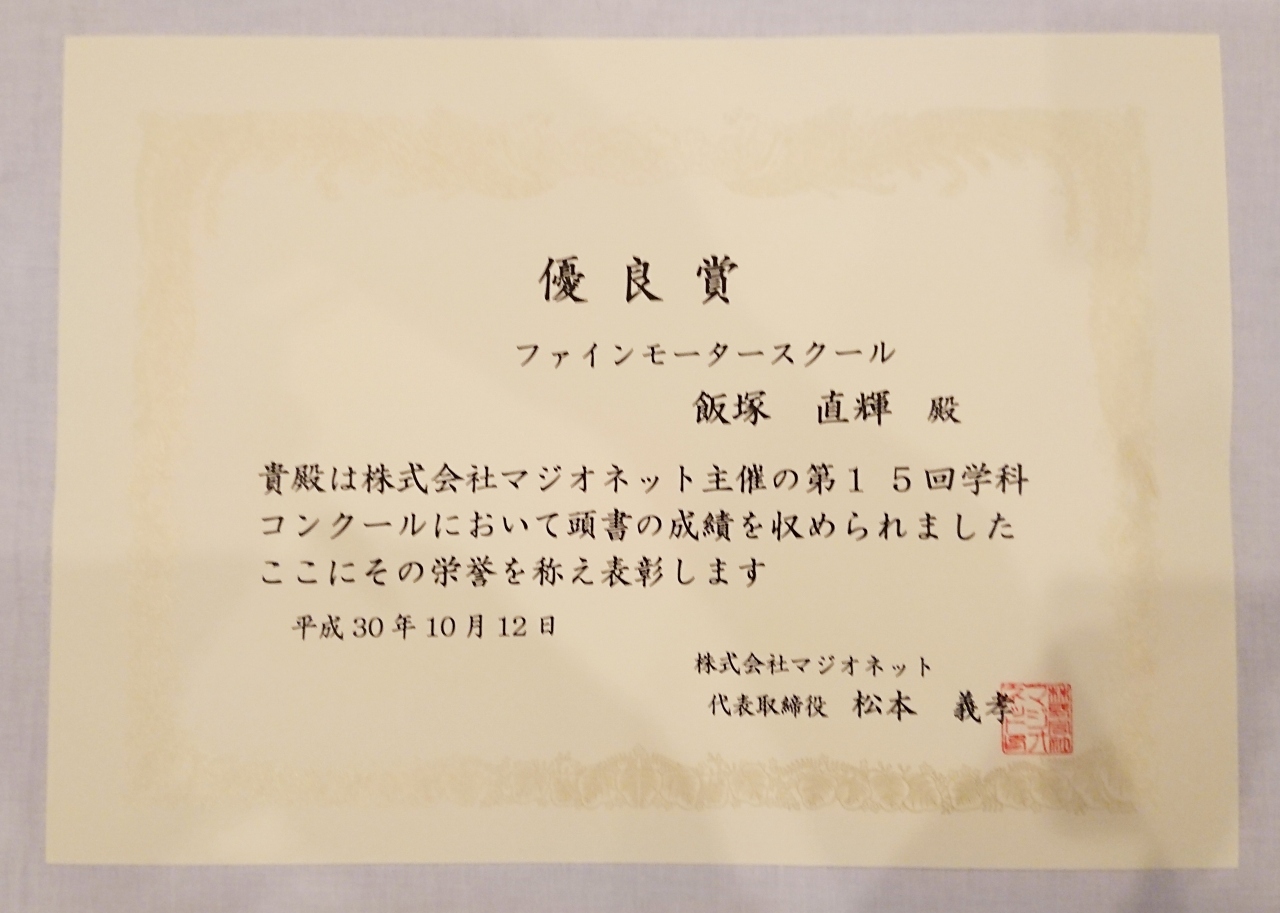 優良賞
ファインモータースクール
飯塚 直輝 殿
貴殿は株式会社マジオネット主催の第15回学科
コンクールにおいて頭書の成績を収められました
ここにその栄誉を称え表彰します
平成30年10月12日
株式会社マジオネット
代表取締役 松本 義孝